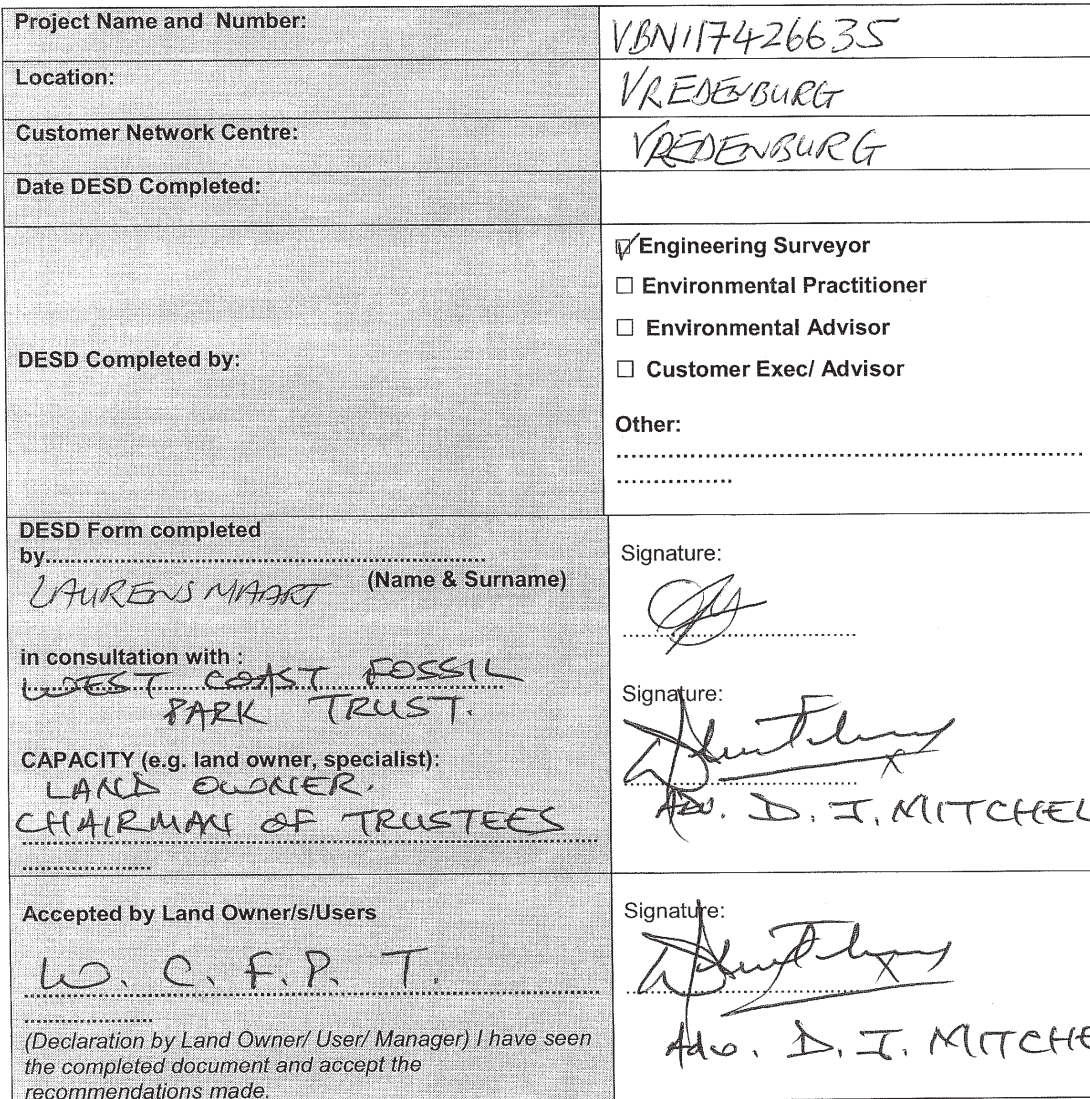 Project Name and Number:
VBN117426635
Location:
VREDENBURG
Customer Network Centre:
VREDENBURG
Date DESD Completed:
DESD Completed by:
Engineering Surveyor
☐ Environmental Practitioner
☐ Environmental Advisor
☐ Customer Exec/ Advisor
Other:
DESD Form completed
by
LAURENS MAART (Name & Surname)
Signature:
in consultation with :
WEST COAST FOSSIL
PARK TRUST.
Signature:
CAPACITY (e.g. land owner, specialist):
LAND OWNER.
CHAIRMAN OF TRUSTEES
ADV. D. J. MITCHEL
Accepted by Land Owner/s/Users
W. C. F. P. T.
(Declaration by Land Owner/ User/ Manager) I have seen
the completed document and accept the
recommendations made.
Signature:
Adv. D. J. MITCHE